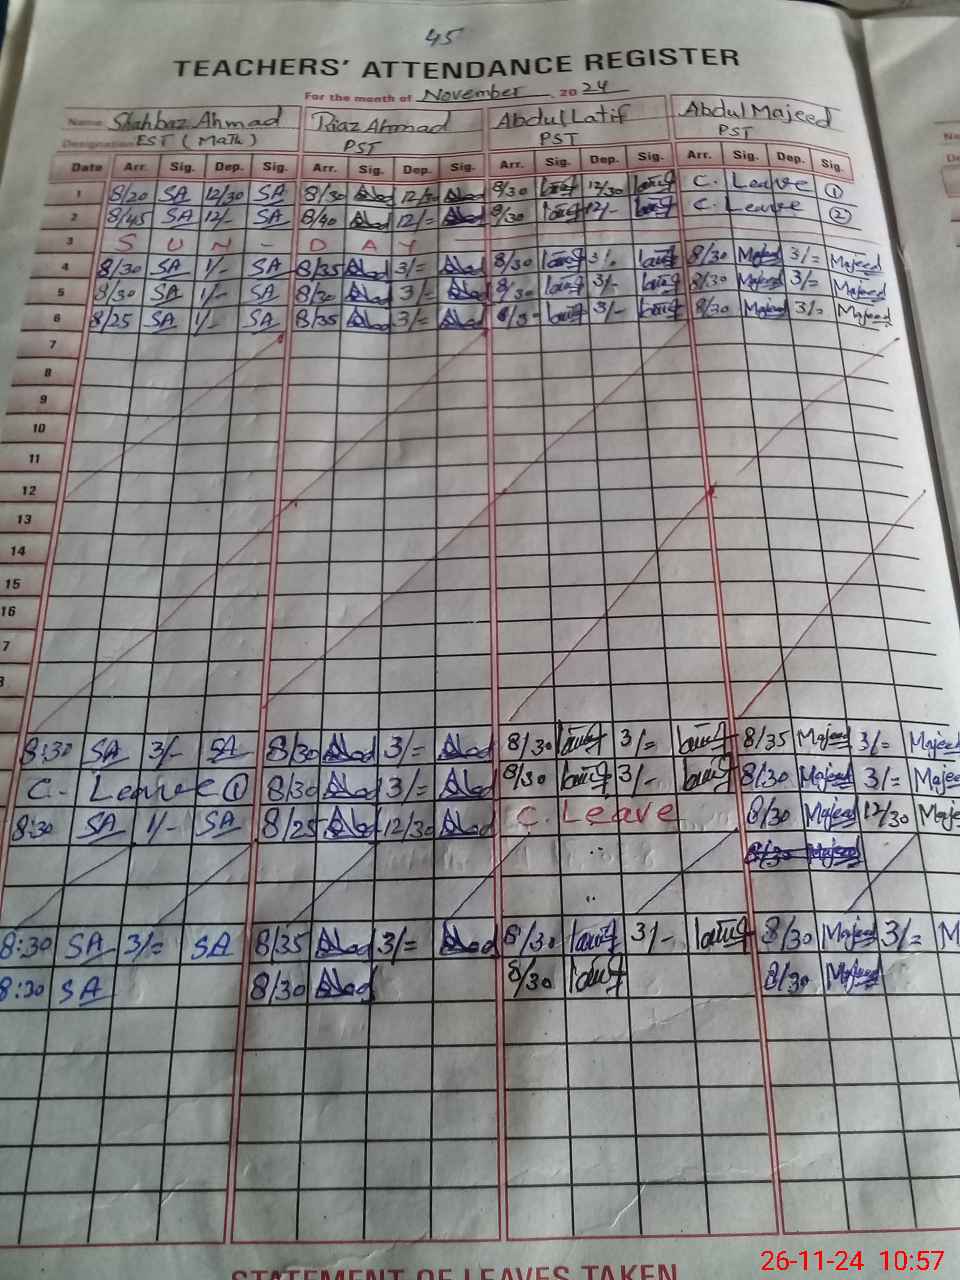 45
TEACHERS' ATTENDANCE REGISTER
For the month of November 2024
Name Shahbaz Ahmad Riaz Ahmad Abdul Latif Abdul Majeed
Designation EST (Math) PST PST PST
Date Arr. Sig. Dep. Sig. Arr. Sig. Dep. Sig. Arr. Sig. Dep. Sig. Arr. Sig. Dep. Sig.
1 8/20 SA 12/30 SA 8/30 12/30 8/30 12/30 C. Leave 1
2 8/45 SA 12/- SA 8/40 12/= 8/30 12/- C. Leave 2
3 S U N - D A Y
4 8/30 SA 1/- SA 8/35 3/= 8/30 3/- 8/30 Majeed 3/= Majeed
5 8/30 SA 1/- SA 8/30 3/- 8/30 3/- 8/30 Majeed 3/= Majeed
6 8/25 SA 1/- SA 8/35 3/= 8/3- 3/- 8/30 Majeed 3/= Majeed
7
8
9
10
11
12
13
14
15
16
7
8:30 SA 3/- SA 8/30 3/= 8/30 3/= 8/35 Majeed 3/= Majeed
C. Leave 1 8/30 3/= 8/30 3/- 8/30 Majeed 3/= Maje
8:30 SA 1/- SA 8/25 12/30 C. Leave 8/30 Majeed 12/30 Maje
8/30 Majeed
8:30 SA 3/= SA 8/35 3/= 8/30 3/- 8/30 Majeed 3/= M
8:30 SA 8/30 8/30 8/30 Majeed
STATEMENT OF LEAVES TAKEN
26-11-24 10:57